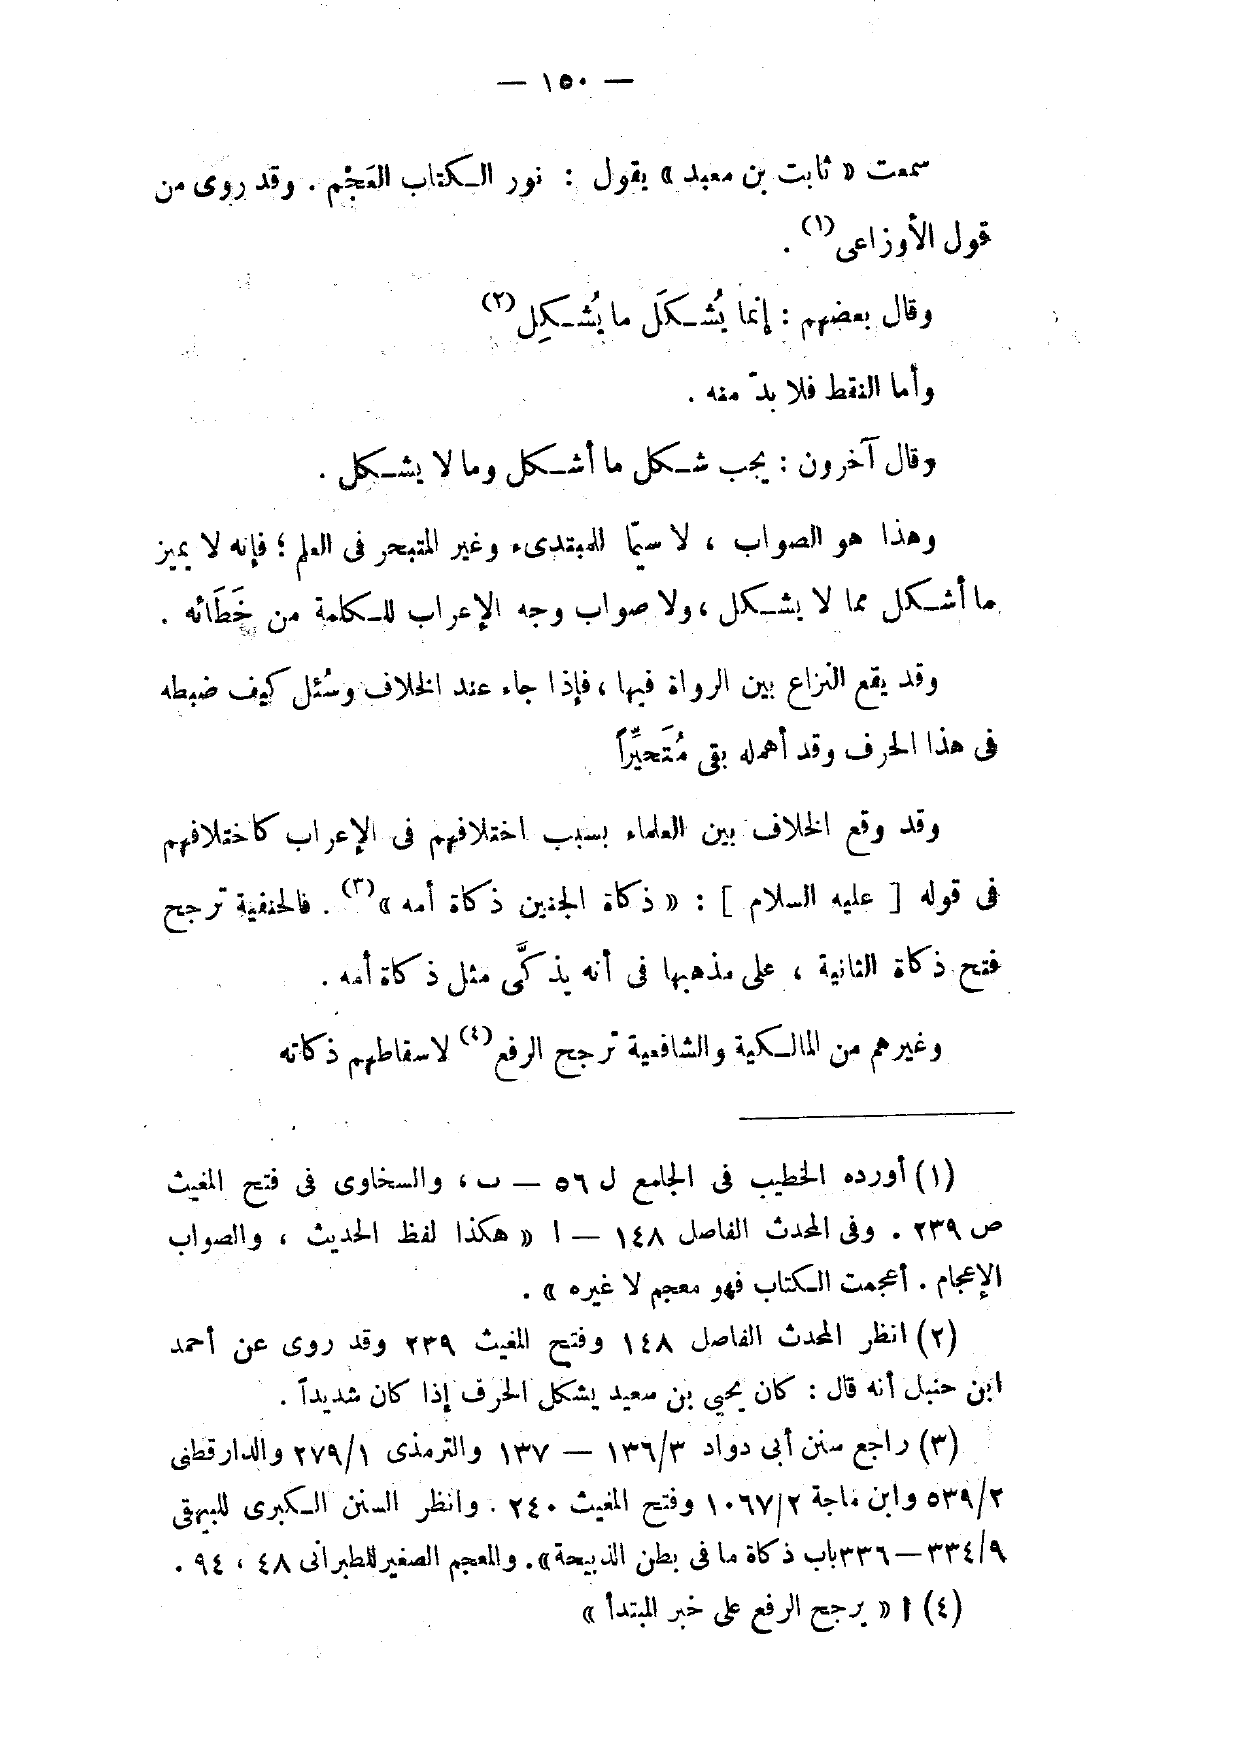 — ١٥٠ —
سمعت « ثابت بن معبد » يقول : نور الكتاب العَجْم . وقد روى من
قول الأوزاعى(١) .
وقال بعضهم : إنما يُشكَل ما يُشكِل(٢)
وأما النقط فلا بدّ منه .
وقال آخرون : يجب شكل ما أشكل وما لا يشكل .
وهذا هو الصواب ، لا سيّما للمبتدىء وغير المتبحر فى العلم ؛ فإنه لا يميز
ما أشكل مما لا يشكل ، ولا صواب وجه الإعراب للكلمة من خَطَائه .
وقد يقع النزاع بين الرواة فيها ، فإذا جاء عند الخلاف وسُئل كيف ضبطه
فى هذا الحرف وقد أهمله بقى مُتَحيِّراً
وقد وقع الخلاف بين العلماء بسبب اختلافهم فى الإعراب كاختلافهم
فى قوله [ عليه السلام ] : « ذكاة الجنين ذكاة أمه »(٣) . فالحنفية ترجح
فتح ذكاة الثانية ، على مذهبها فى أنه يذكَّى مثل ذكاة أمه .
وغيرهم من المالكية والشافعية ترجح الرفع(٤) لاسقاطهم ذكاته
(١) أورده الخطيب فى الجامع ل ٥٦ — ب ، والسخاوى فى فتح المغيث
ص ٢٣٩ . وفى المحدث الفاصل ١٤٨ — ا « هكذا لفظ الحديث ، والصواب
الإعجام . أعجمت الكتاب فهو معجم لا غيره » .
(٢) انظر المحدث الفاصل ١٤٨ وفتح المغيث ٢٣٩ وقد روى عن أحمد
ابن حنبل أنه قال : كان يحيى بن سعيد يشكل الحرف إذا كان شديداً .
(٣) راجع سنن أبى دواد ١٣٦/٣ — ١٣٧ والترمذى ٢٧٩/١ والدارقطنى
٥٣٩/٢ وابن ماجة ١٠٦٧/٢ وفتح المغيث ٢٤٠ . وانظر السنن الكبرى للبيهقى
٣٣٤/٩ — ٣٣٦ باب ذكاة ما فى بطن الذبيحة » . والمعجم الصغير للطبرانى ٤٨ ، ٩٤ .
(٤) ا « يرجح الرفع على خبر المبتدأ »